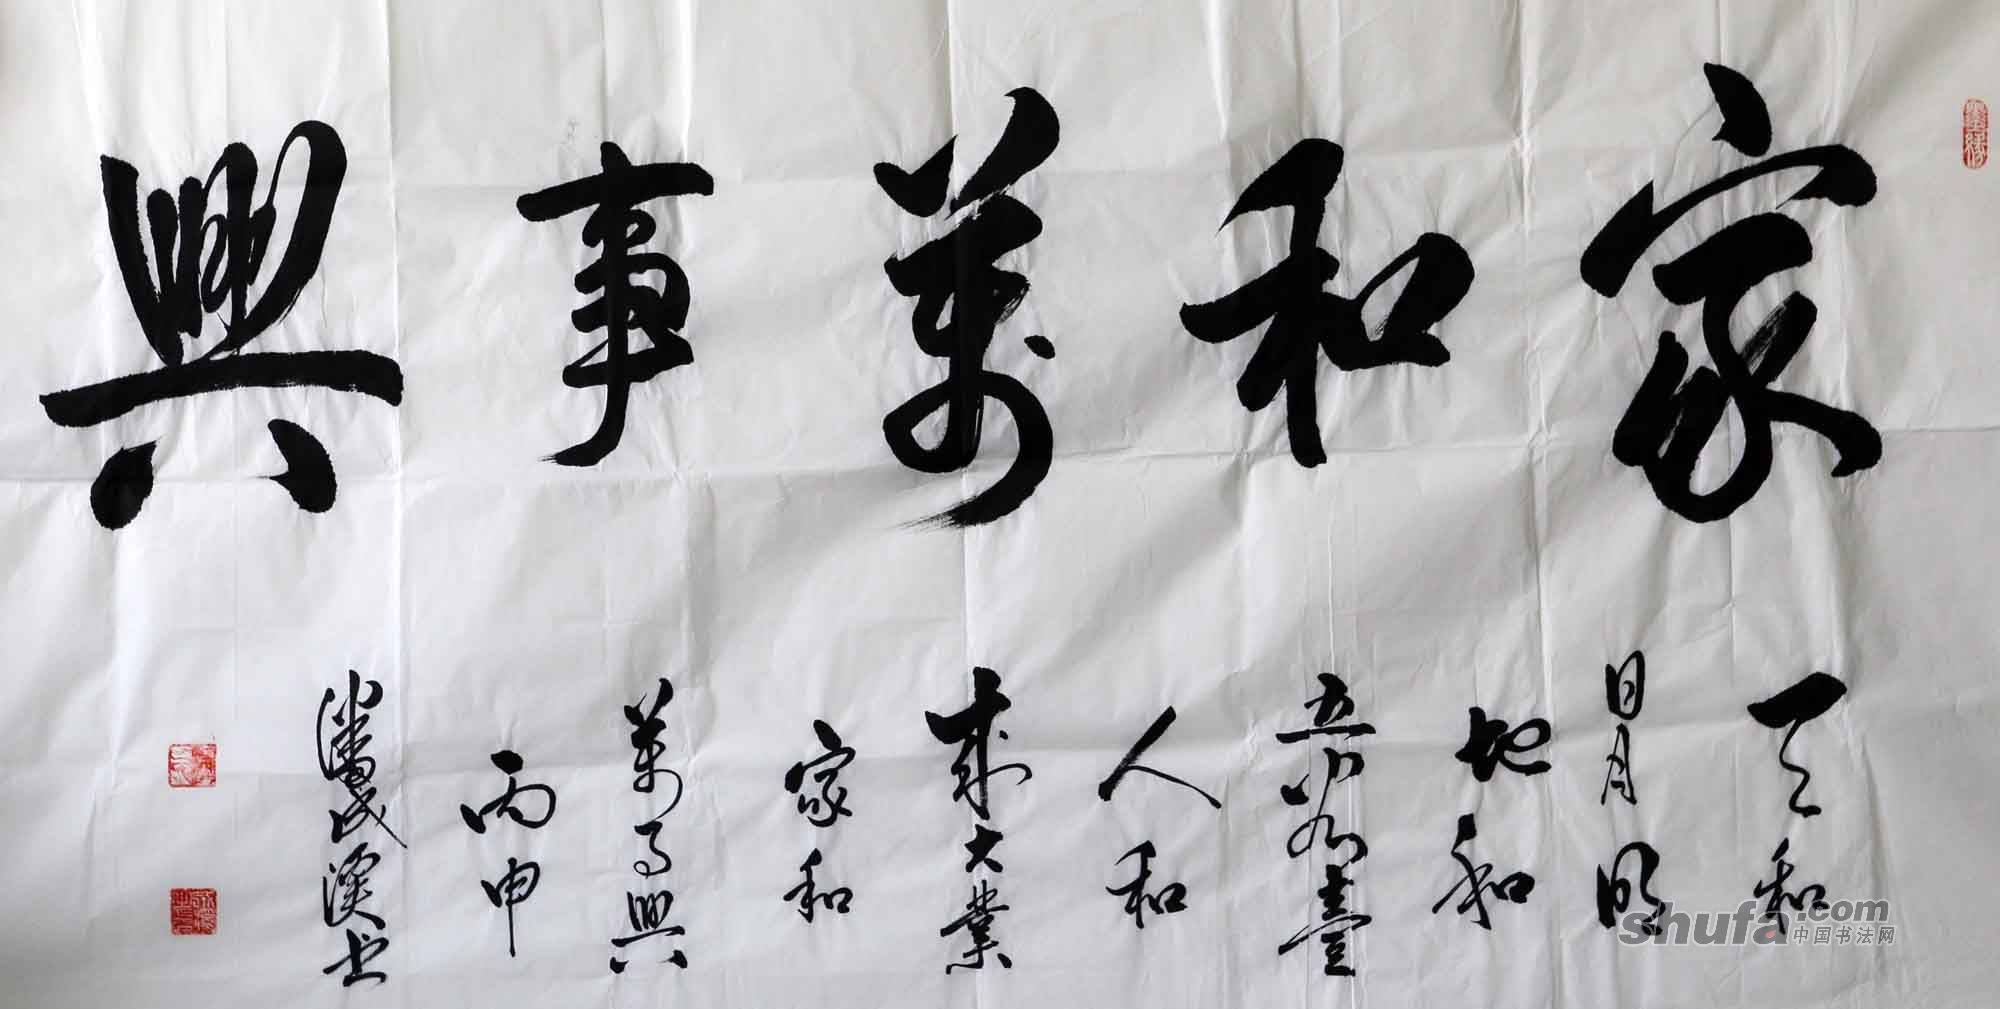 家和萬事興
天和
日月明
地和
五谷豐
人和
成大業
家和
萬事興
丙申
潘成漢书
shufa.com
中国书法网